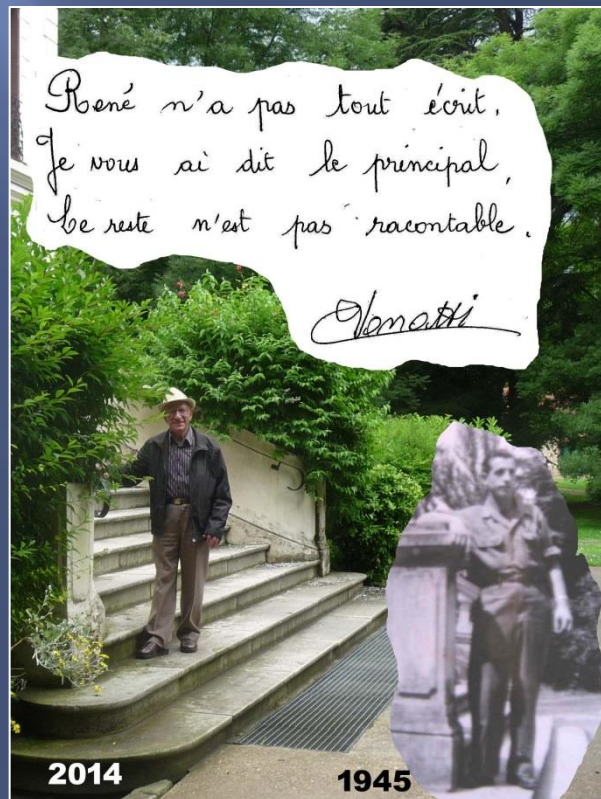 René n'a pas tout écrit.
Je vous ai dit le principal,
Le reste n'est pas racontable.
Vanotti
2014
1945